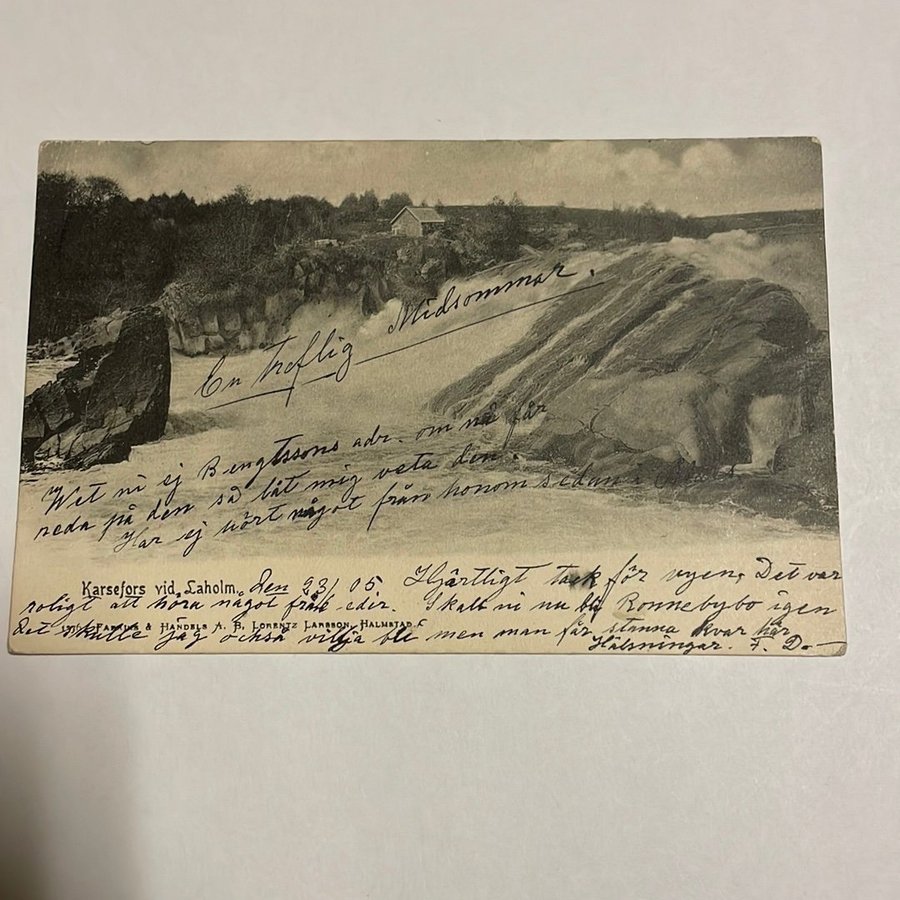 En treflig Midsommar.
Wet ni ej Bengtssons adr. om nå får
reda på den så låt mig veta den.
Har ej hört något från honom sedan i
Karsefors vid Laholm. Den 23/ 05 Hjärtligt tack för vyen. Det var
roligt att höra något från eder. Skall ni nu bli Ronnebybo igen
Fabriks & Handels A. B. Lorentz Larsson, Halmstad.
Det skulle jag också vilja bli men man får stanna kvar här
Hälsningar. F. D.